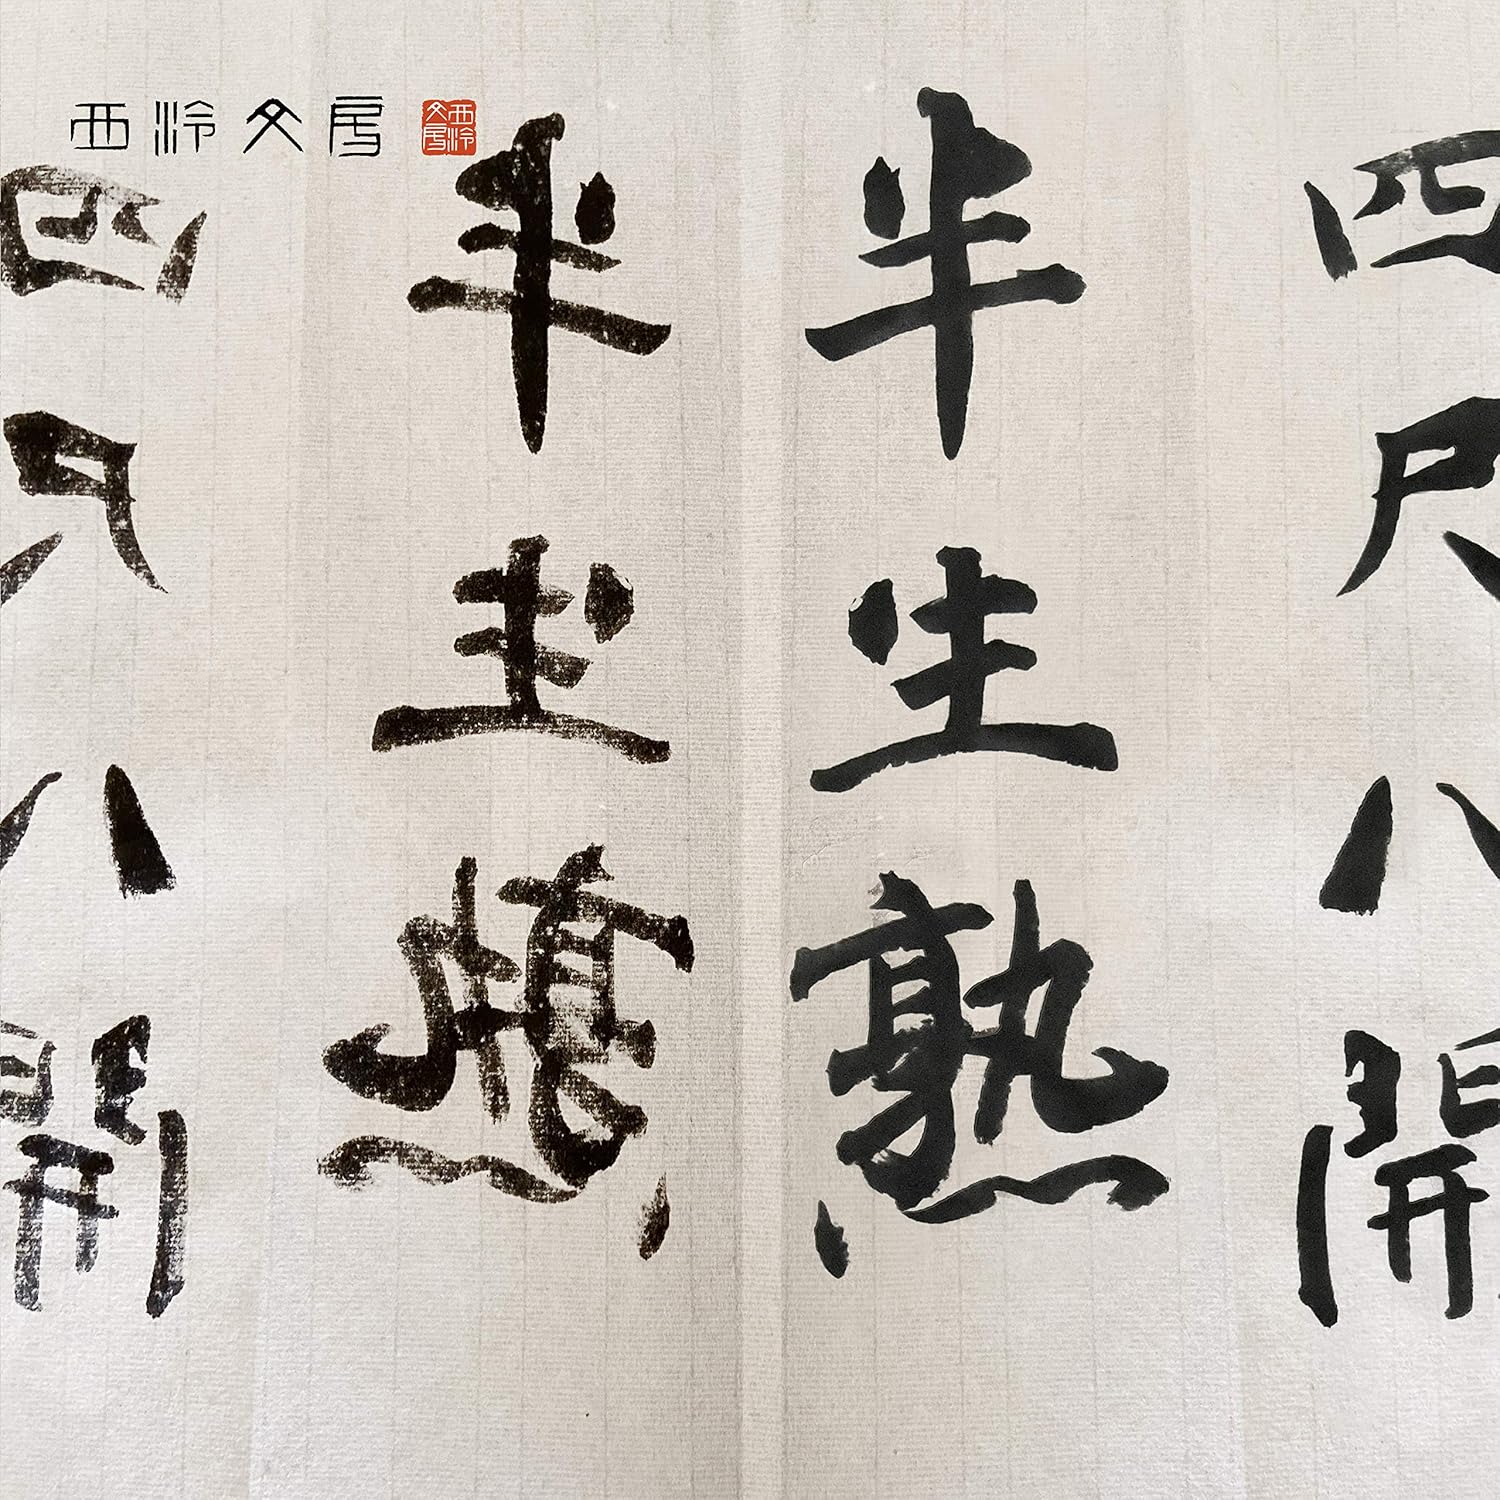 西泠文房
西泠文房
四尺八開
半生熟
半生熟
四尺八開